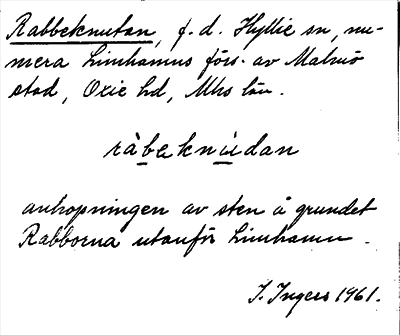 Rabbeknuten, f. d. Hyllie sn, nu-
mera Limhamns förs. av Malmö
stad, Oxie hd, Mhs län.
ràbeknúdan
anhopningen av sten å grundet
Rabborna utanför Limhamn.
I. Ingers 1961.